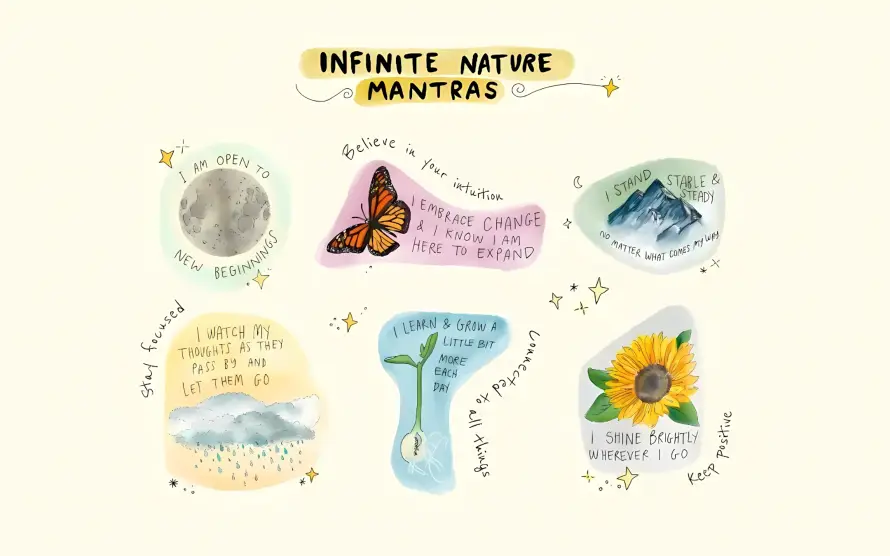 INFINITE NATURE
MANTRAS
I AM OPEN TO
NEW BEGINNINGS
Believe in your intuition
I EMBRACE CHANGE
& I KNOW I AM
HERE TO EXPAND
I STAND STABLE &
STEADY
NO MATTER WHAT COMES MY WAY
Stay focused
I WATCH MY
THOUGHTS AS THEY
PASS BY AND
LET THEM GO
I LEARN & GROW A
LITTLE BIT
MORE
EACH
DAY
Connected to all things
I SHINE BRIGHTLY
WHEREVER I GO
Keep positive